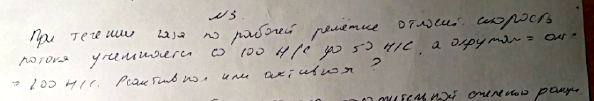 №3.
При течении газа по рабочей решётке относит. скорость
потока уменьшается со 100 м/с до 50 м/с, а окружн =
= 200 м/с. Реактивная или активная?
степенью